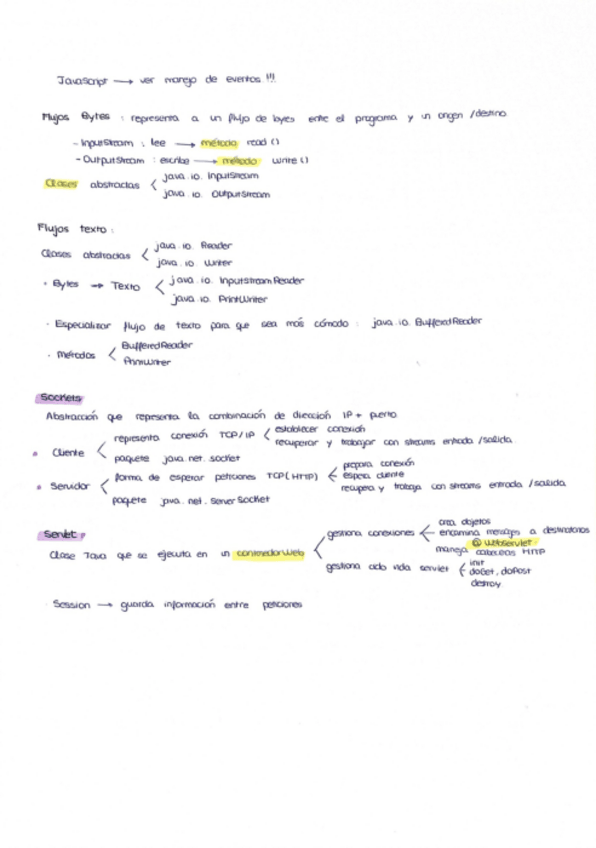 JavaScript → ver manejo de eventos!!!
Flujos Bytes : representa a un flujo de bytes entre el programa y un origen /destino
- InputStream : lee → método read ()
- OutputStream : escribe → método write ()
Clases abstractas < java.io. InputStream
java.io. OutputStream
Flujos texto :
Clases abstractas < java.io. Reader
java.io. Writer
· Bytes → Texto < java.io. InputStreamReader
java.io. PrintWriter
· Especializar flujo de texto para que sea más cómodo : java.io. BufferedReader
· Métodos < BufferedReader
PrintWriter
Sockets
Abstracción que representa la combinación de dirección IP + puerto
• Cliente < representa conexión TCP/IP < establecer conexión
recuperar y trabajar con streams entrada /salida.
paquete java.net. socket
• Servidor < forma de esperar peticiones TCP (HTTP) < prepara conexión
espera cliente
recupera y trabaja con streams entrada /salida
paquete java.net. Server Socket
Servlet
Clase Java que se ejecuta en un contenedor web < gestiona conexiones < crea objetos
encamina mensajes a destinatarios
@WebServlet
maneja cabeceras HTTP
gestiona ciclo vida servlet < init
doGet, doPost
destroy
Session → guarda información entre peticiones